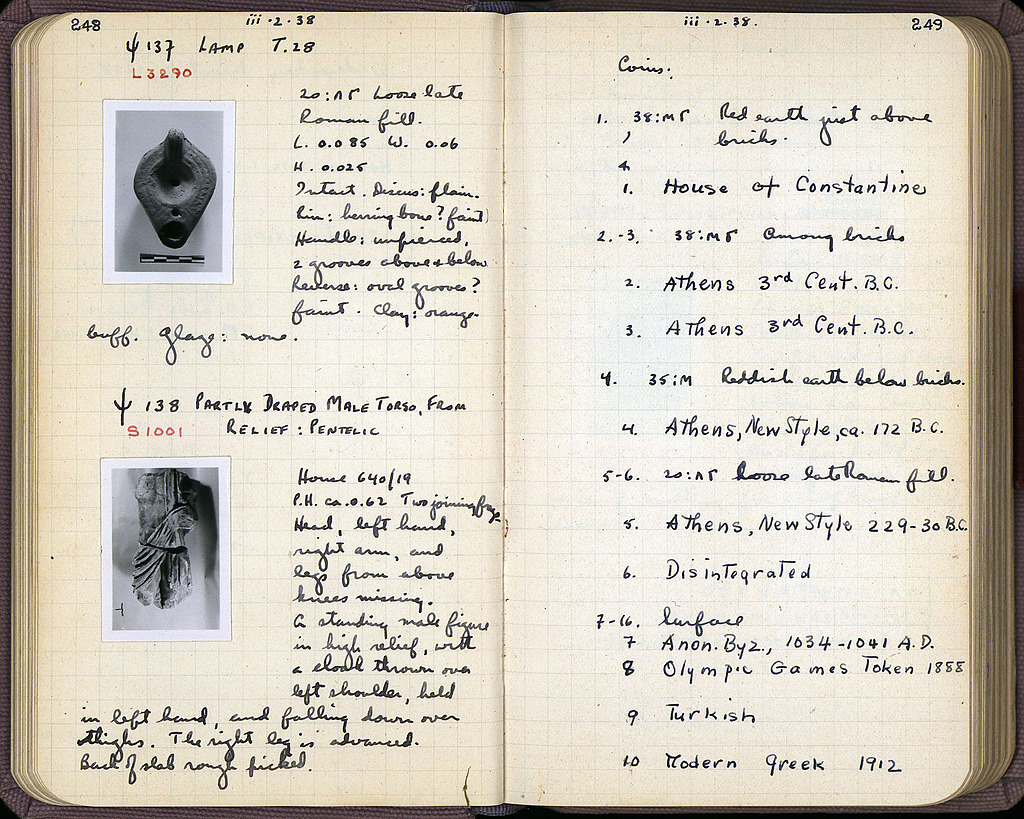 248
iii·2·38
Ψ 137 LAMP T.28
L 3290
20:ΛΓ Loose late
Roman fill.
L. 0.085 W. 0.06
H. 0.025
Intact. Discus: plain.
Rim: herring bone? faint)
Handle: unpierced,
2 grooves above & below
Reverse: oval grooves?
faint. Clay: orange-
buff. Glaze: none.
Ψ 138 PARTLY DRAPED MALE TORSO, FROM
S 1001 RELIEF: PENTELIC
House 640/19
P.H. ca. 0.62 Two joining frgs.
Head, left hand,
right arm, and
legs from above
knees missing.
A standing male figure
in high relief, with
a cloak thrown over
left shoulder, held
in left hand, and falling down over
thighs. The right leg is advanced.
Back of slab rough picked.
iii·2·38.
249
Coins.
1. 38:ΜΓ Red earth just above
bricks.
1. House of Constantine
2.-3. 38:ΜΓ Among bricks
2. Athens 3rd Cent. B.C.
3. Athens 3rd Cent. B.C.
4. 35:Μ Reddish earth below bricks.
4. Athens, New Style, ca. 172 B.C.
5-6. 20:ΛΓ Loose late Roman fill.
5. Athens, New Style 229-30 B.C.
6. Disintegrated
7-16. Surface
7 Anon. Byz., 1034-1041 A.D.
8 Olympic Games Token 1888
9 Turkish
10 Modern Greek 1912